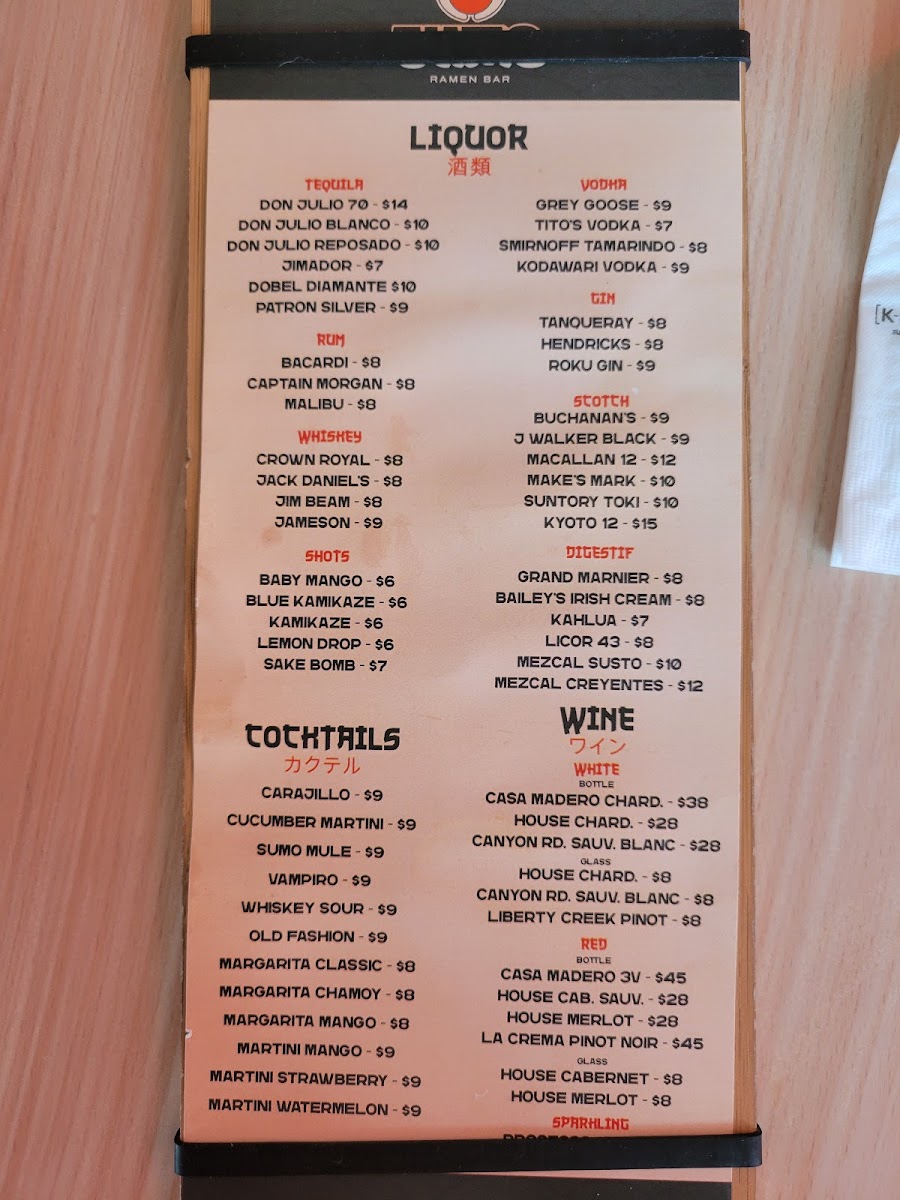 RAMEN BAR
LIQUOR
酒類
TEQUILA
DON JULIO 70 - $14
DON JULIO BLANCO - $10
DON JULIO REPOSADO - $10
JIMADOR - $7
DOBEL DIAMANTE $10
PATRON SILVER - $9
RUM
BACARDI - $8
CAPTAIN MORGAN - $8
MALIBU - $8
WHISKEY
CROWN ROYAL - $8
JACK DANIEL'S - $8
JIM BEAM - $8
JAMESON - $9
SHOTS
BABY MANGO - $6
BLUE KAMIKAZE - $6
KAMIKAZE - $6
LEMON DROP - $6
SAKE BOMB - $7
VODKA
GREY GOOSE - $9
TITO'S VODKA - $7
SMIRNOFF TAMARINDO - $8
KODAWARI VODKA - $9
GIN
TANQUERAY - $8
HENDRICKS - $8
ROKU GIN - $9
SCOTCH
BUCHANAN'S - $9
J WALKER BLACK - $9
MACALLAN 12 - $12
MAKE'S MARK - $10
SUNTORY TOKI - $10
KYOTO 12 - $15
DIGESTIF
GRAND MARNIER - $8
BAILEY'S IRISH CREAM - $8
KAHLUA - $7
LICOR 43 - $8
MEZCAL SUSTO - $10
MEZCAL CREYENTES - $12
COCKTAILS
カクテル
CARAJILLO - $9
CUCUMBER MARTINI - $9
SUMO MULE - $9
VAMPIRO - $9
WHISKEY SOUR - $9
OLD FASHION - $9
MARGARITA CLASSIC - $8
MARGARITA CHAMOY - $8
MARGARITA MANGO - $8
MARTINI MANGO - $9
MARTINI STRAWBERRY - $9
MARTINI WATERMELON - $9
WINE
ワイン
WHITE
BOTTLE
CASA MADERO CHARD. - $38
HOUSE CHARD. - $28
CANYON RD. SAUV. BLANC - $28
GLASS
HOUSE CHARD. - $8
CANYON RD. SAUV. BLANC - $8
LIBERTY CREEK PINOT - $8
RED
BOTTLE
CASA MADERO 3V - $45
HOUSE CAB. SAUV. - $28
HOUSE MERLOT - $28
LA CREMA PINOT NOIR - $45
GLASS
HOUSE CABERNET - $8
HOUSE MERLOT - $8
SPARKLING
[K-